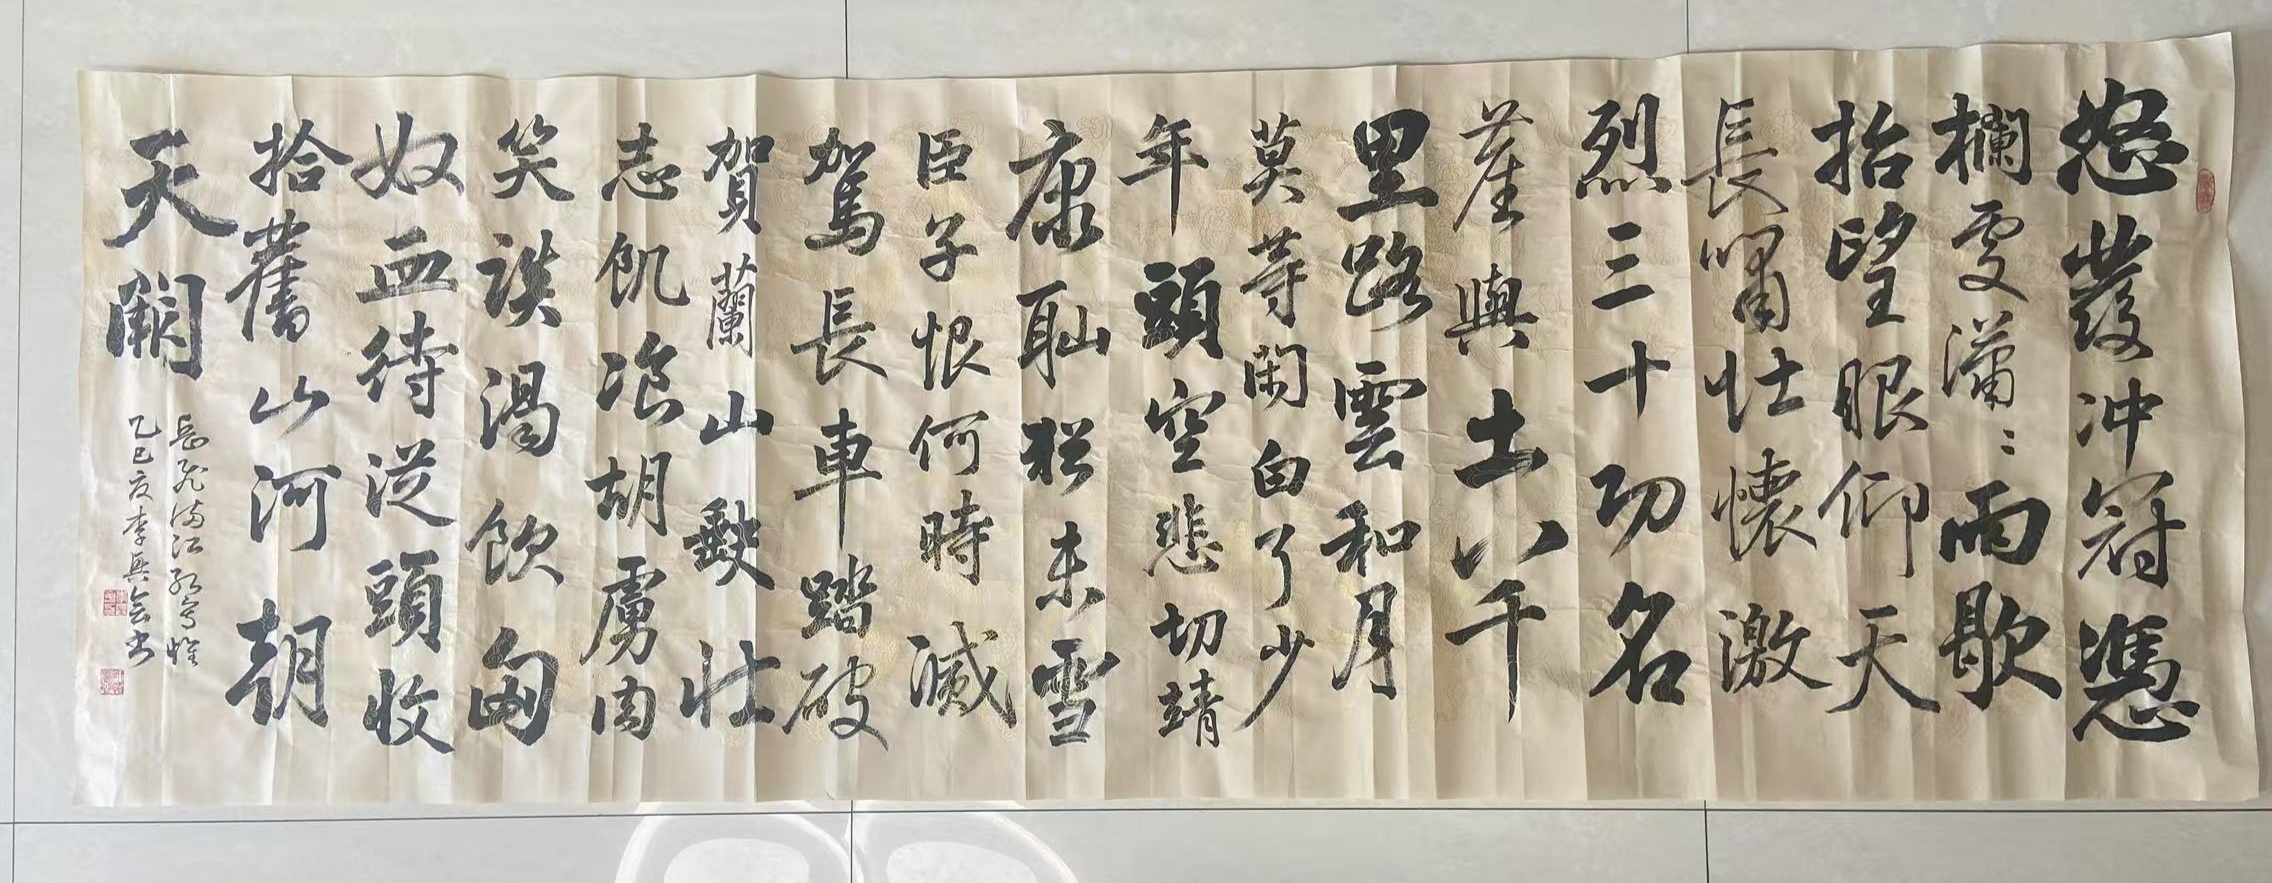 怒髮冲冠憑
欄處瀟〻雨歇
抬望眼仰天
長嘯壮懷激
烈三十功名
塵與土八千
里路雲和月
莫等閑白了少
年頭空悲切靖
康耻猶未雪
臣子恨何時滅
駕長車踏破
賀蘭山缺壮
志飢飡胡虜肉
笑談渴飲匈
奴血待從頭收
拾舊山河朝
天闕
岳飛滿江紅寫懷
乙巳夏李興會书